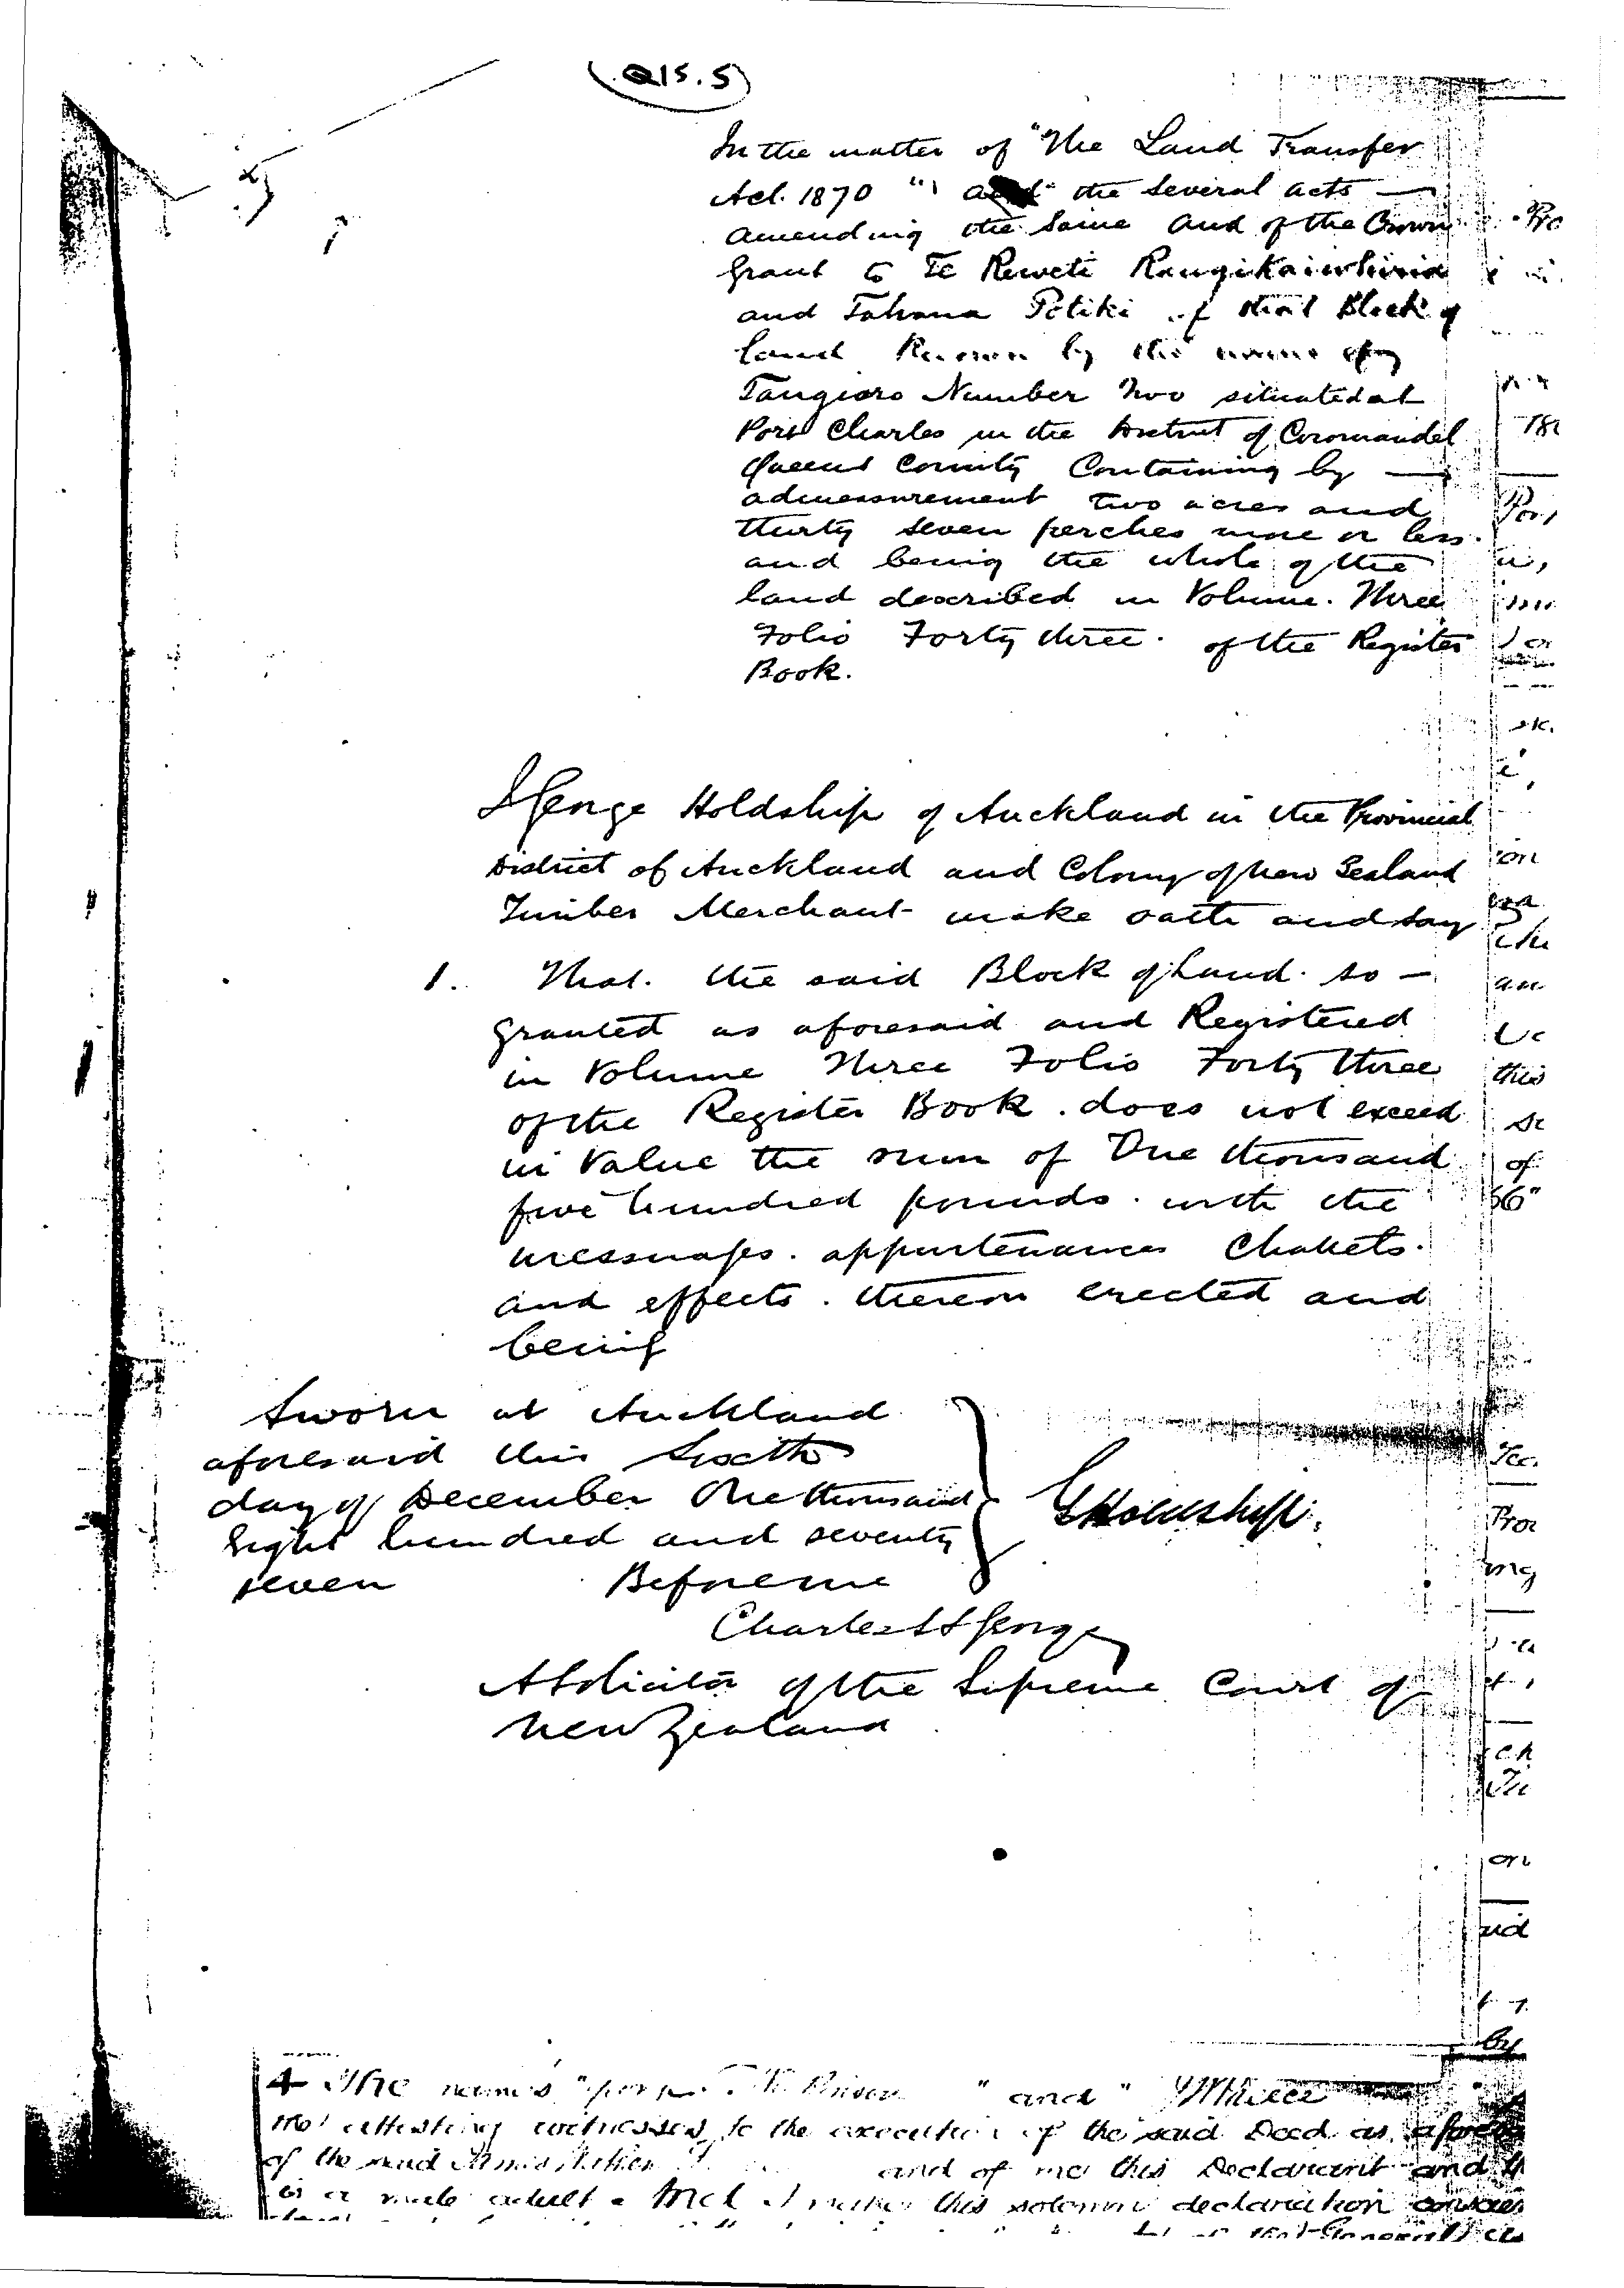 Q15.5
In the matter of "The Land Transfer
Act. 1870" and the several acts —
amending the same and of the Crown
Grant to Te Reweti Rangikaiwhiria
and Tahana Potiki of that Block of
land Known by the name of
Tangiaro Number Two situated at
Port Charles in the District of Coromandel
Queens County Containing by —
admeasurement two acres and
thirty seven perches more or less.
and being the whole of the
land described in Volume. Three
Folio Forty three. of the Register
Book.
I George Holdship of Auckland in the Provincial
District of Auckland and Colony of New Zealand
Timber Merchant make oath and say
1. That. the said Block of Land. so —
granted as aforesaid and Registered
in Volume Three Folio Forty three
of the Register Book. does not exceed
in Value the sum of One thousand
five hundred pounds. with the
messuages. appurtenances Chattels.
and effects. thereon erected and
being
Sworn at Auckland
aforesaid this Sixth
day of December One thousand
Eight hundred and seventy
seven Before me
GHoldship.
Charles H George
A Solicitor of the Supreme Court of
New Zealand
4 The names " " and "
the attesting witnesses to the execution of the said Deed as
of the said and of me this Declarant and
is a male adult. And I make this solemn declaration